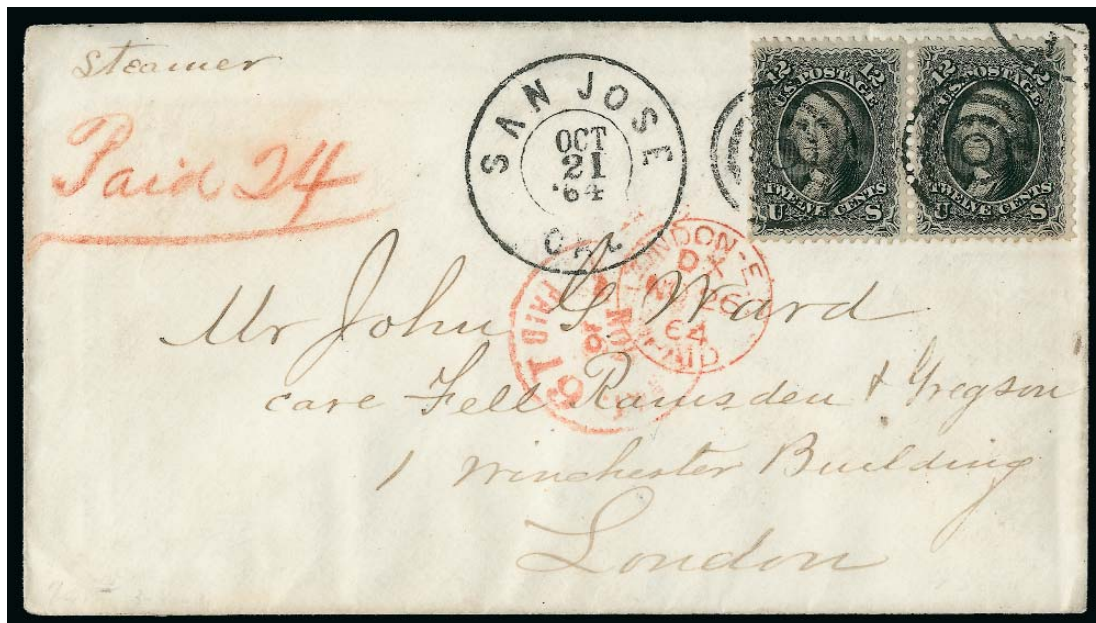 Steamer
Paid 24
SAN JOSE
OCT
21
'64
CAL
12 12
U.S. POSTAGE
TWELVE CENTS
U S
12 12
U.S. POSTAGE
TWELVE CENTS
U S
LONDON-E
PX
NO 26
64
PAID
NOV
PAID
19
Mr John G. Ward
care Fell Ramsden & Gregson
1 Winchester Building
London